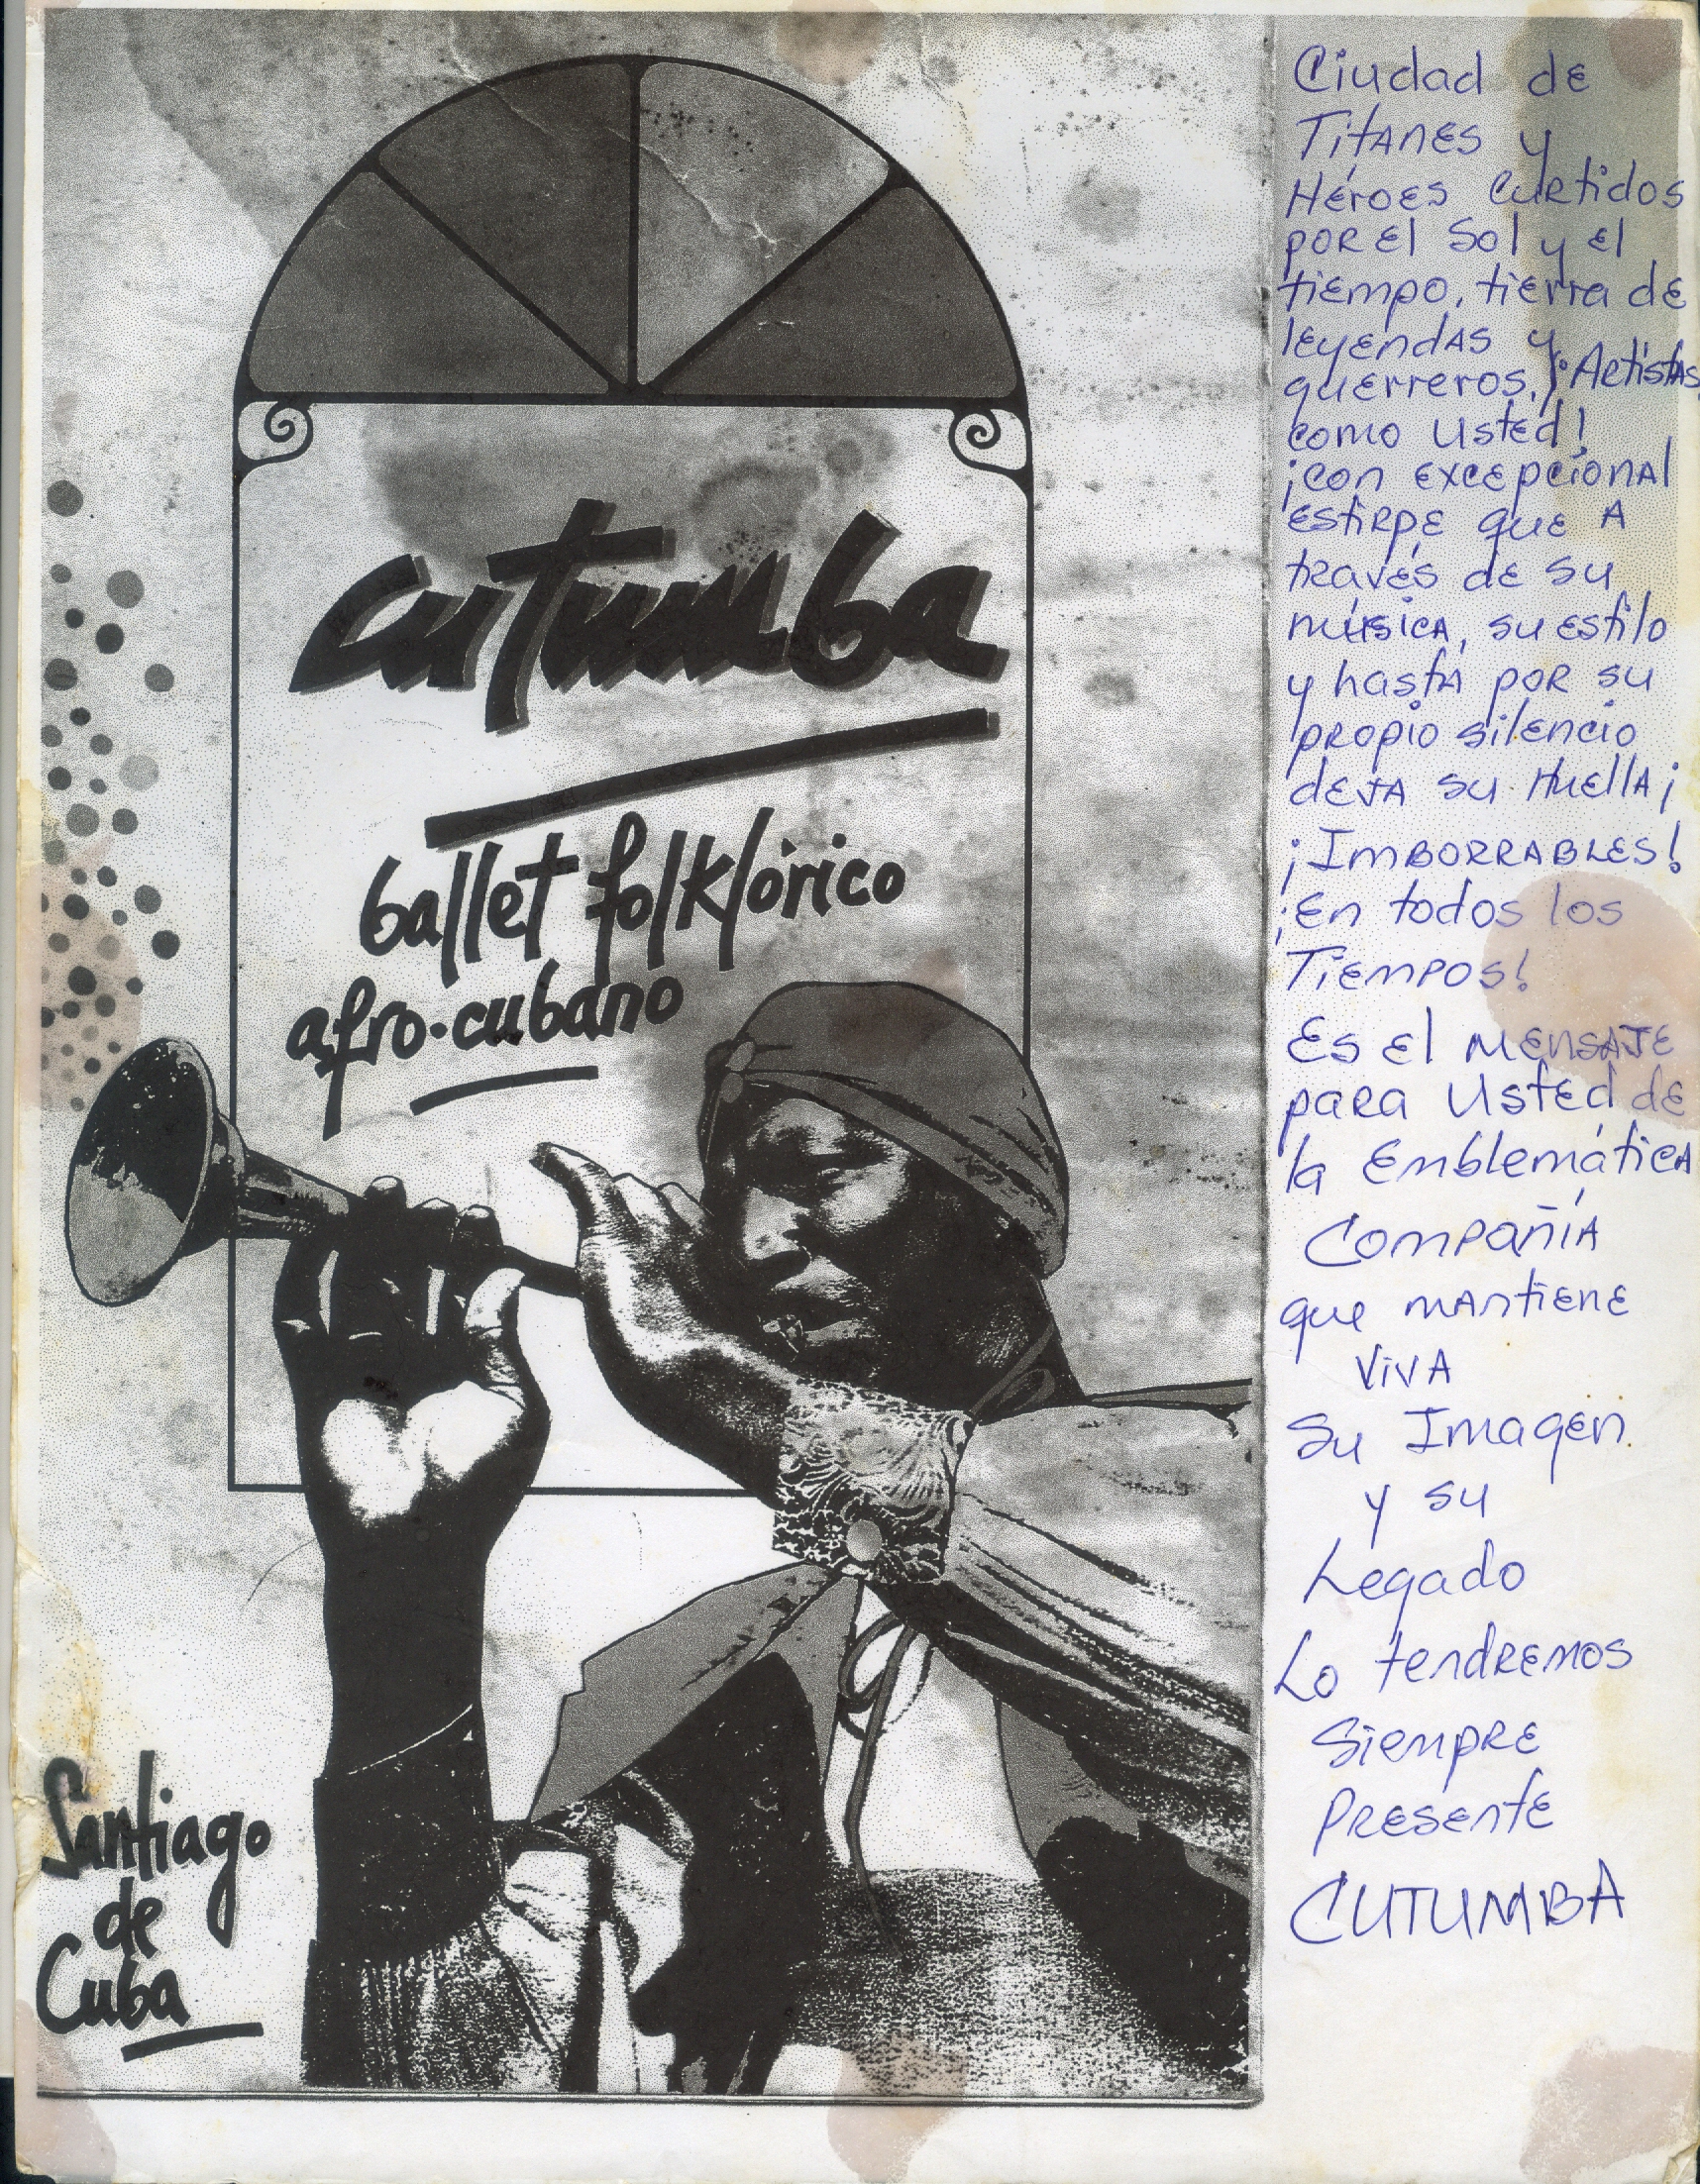 cutumba
ballet folklórico
afro-cubano
Santiago
de
Cuba
Ciudad de
Titanes y
Héroes Curtidos
por el Sol y el
tiempo, tierra de
leyendas y
guerreros, ¡Artistas
como Usted!
¡con excepcional
estirpe que A
través de su
música, su estilo
y hasta por su
propio silencio
deja su Huella¡
¡IMBORRABLES!
¡En todos los
Tiempos!
Es el mensaje
para Usted de
la Emblemática
Compañía
que mantiene
viva
Su Imagen
y su
Legado
Lo tendremos
Siempre
Presente
CUTUMBA